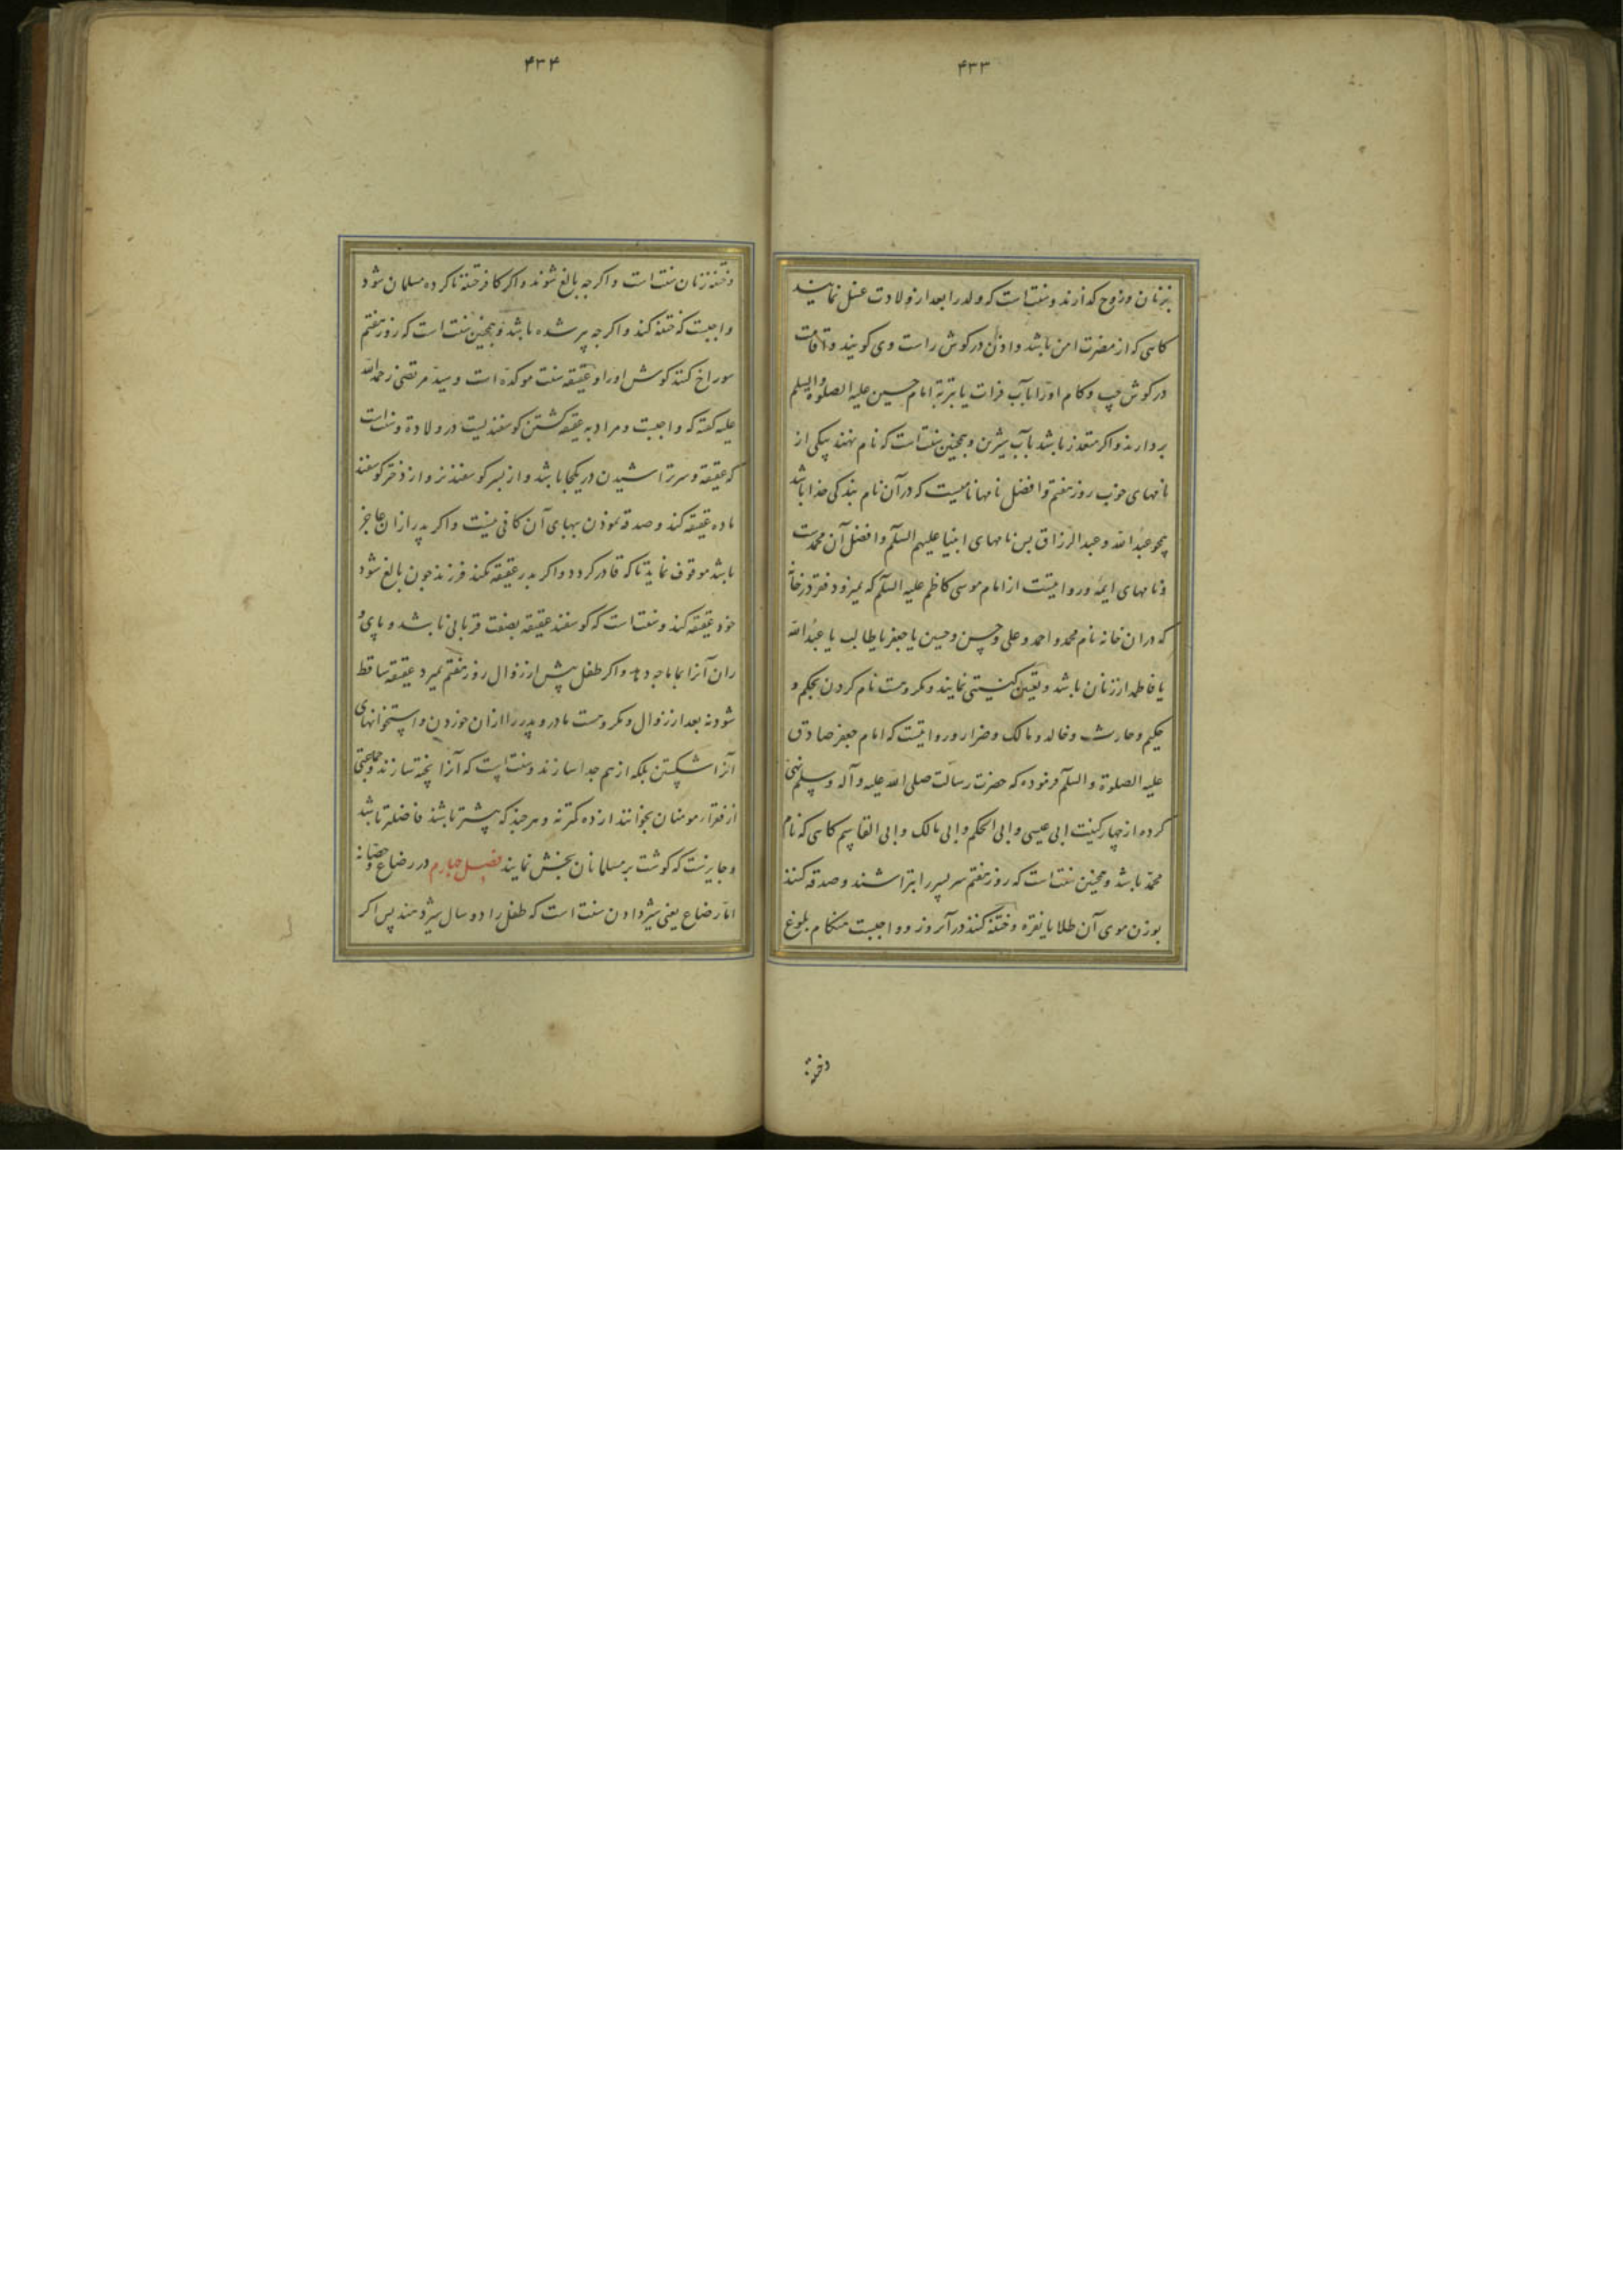 ۴۳۳
بزنان وزوج گذارند و سنت است که ولد را بعد از ولادت غسل نمایند
کاهی که از مضرت امن باشد و اذان در کوش راست وی کویند و اقامت
در کوش چپ و کام او را بآب فرات یا بتربة امام حسین علیه الصلوة والسلم
بردارند و اکر متعذر باشد بآب شیرین و همچنین سنت است که نام نهند بیکی از
نامهای خوب روز هفتم و افضل نامها نامیست که در آن نام بندکی خدا باشد
همچو عبد الله و عبد الرزاق پس نامهای انبیا علیهم السلم و افضل آن محمدست
و نامهای ایمه و روایتست از امام موسی کاظم علیه السلم که نمیرود فقر در خانهٔ
که در ان خانه نام محمد و احمد و علی و حسن و حسین یا جعفر یا طالب یا عبد الله
یا فاطمه از زنان باشد و تعیین کنیتی نمایند و مکروهست نام کردن بحکم و
حکیم و حارث و خالد و مالک و ضرار و روایتست که امام جعفر صادق
علیه الصلوة والسلم فرموده که حضرت رسالت صلی الله علیه و آله وسلم نهی
کرده از چهار کنیت ابی عیسی و ابی الحکم و ابی مالک و ابی القاسم کاهی که نام
محمد باشد و همچنین سنت است که روز هفتم سر پسر را بتراشند و صدقه کنند
بوزن موی آن طلا یا نقره و ختنه کنند در آنروز و واجبست هنکام بلوغ
وختنه
۴۳۴
وختنه زنان سنت است و اکرچه بالغ شوند و اکر کافر ختنه ناکرده مسلمان شود
واجبست که ختنه کند و اکرچه پیر شده باشد و همچنین سنت است که روز هفتم
سوراخ کنند کوش او را و عقیقه سنت موکده است و سید مرتضی رحمة الله
علیه کفته که واجبست و مراد به عقیقه کشتن کوسفندیست در ولادة و سنت است
که عقیقه و سر تراشیدن در یکجا باشد و از پسر کوسفند نر و از دختر کوسفند
ماده عقیقه کند و صدقه نمودن بهای آن کافی نیست و اکر پدر از ان عاجز
باشد موقوف نماید تا که قادر کردد و اکر پدر عقیقه نکند فرزند چون بالغ شود
خود عقیقه کند و سنت است که کوسفند عقیقه بصفت قربانی باشد و پای و
ران آنرا بماماچه دهد و اکر طفل پیش از زوال روز هفتم بمیرد عقیقه ساقط
شود نه بعد از زوال و مکروهست مادر و پدر را از ان خوردن و استخوانهای
آنرا شکستن بلکه از هم جدا سازند و سنت است که آنرا پخته سازند و جماعتی
از فقراء مومنان بخوانند از ده کمتر نه و هر چند که بیشتر باشند فاضلتر باشد
و جایزست که کوشت بر مسلمانان بخش نمایند فصل چهارم در رضاع و حضانه
اما رضاع یعنی شیر دادن سنت است که طفل را دو سال شیر دهند پس اکر